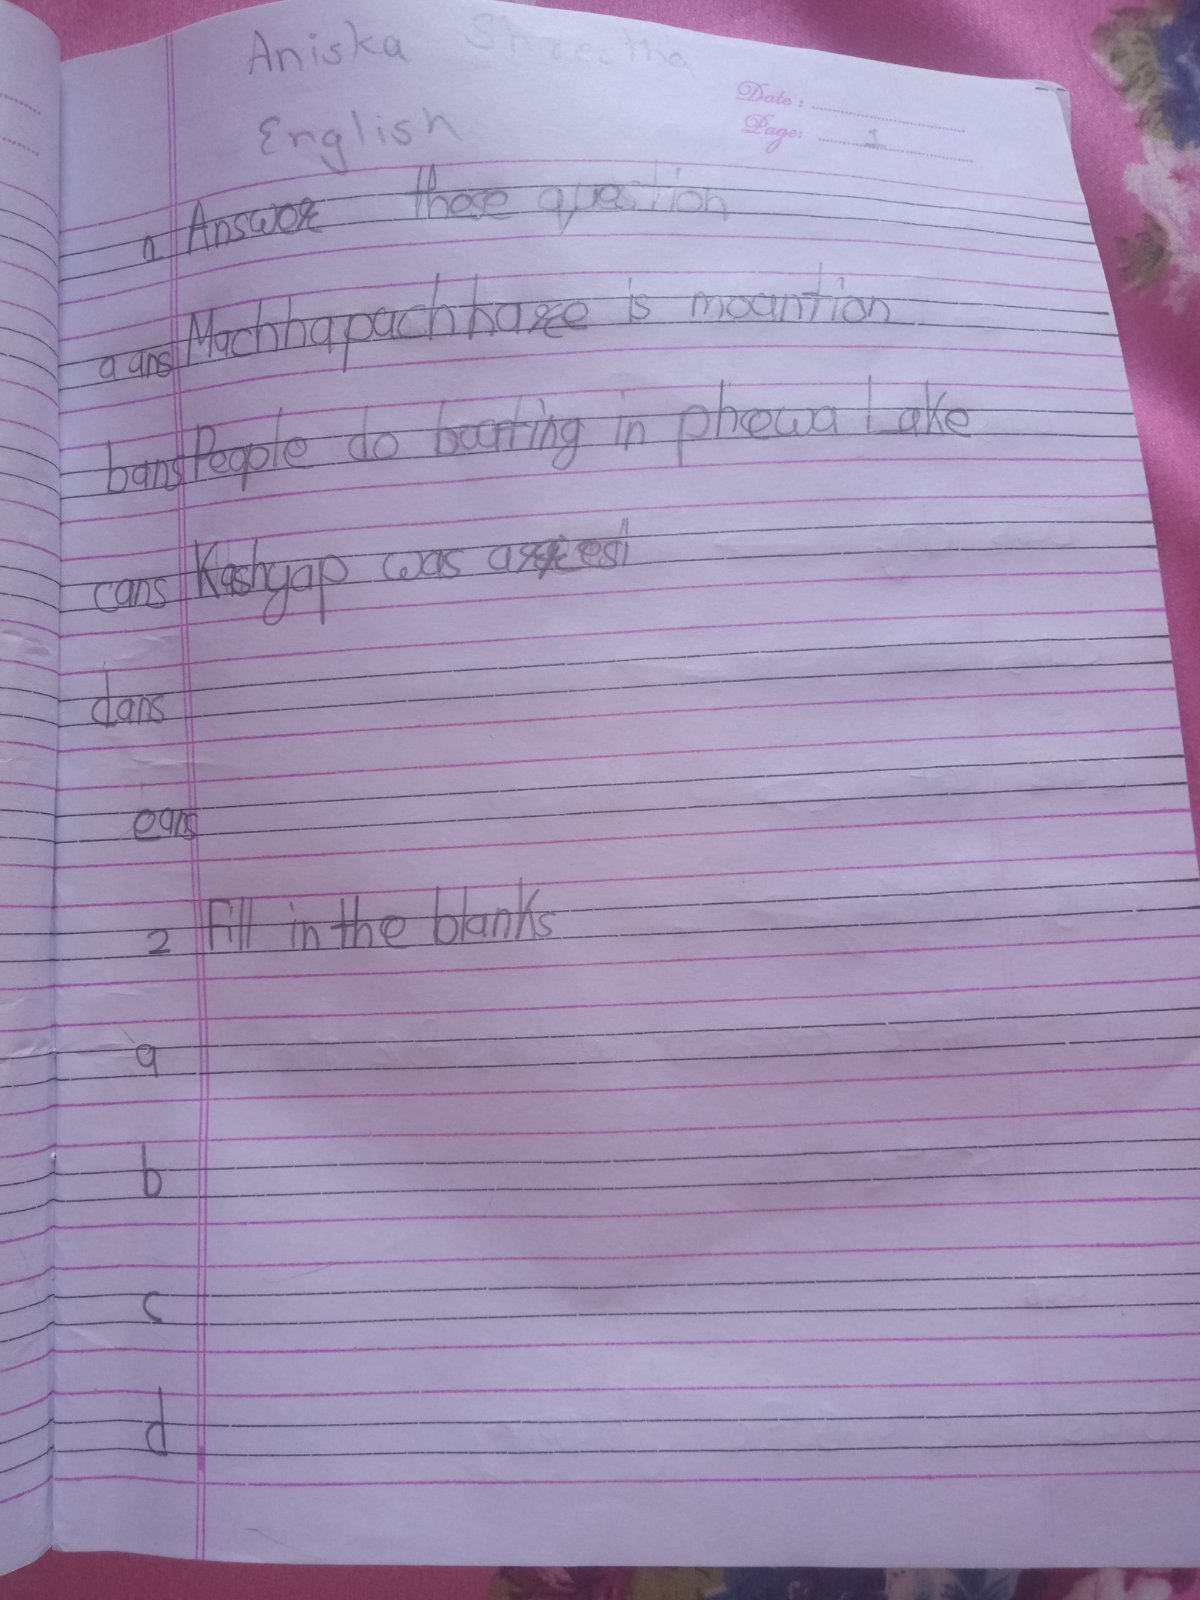 Aniska Shrestha
Date :
English
Page: 1
1 Answer these question
a ans Machhapachhare is mountion
b ans People do boarting in phewa Lake
c ans Kashyap was arrest
d ans
e ans
2 Fill in the blanks
a
b
c
d